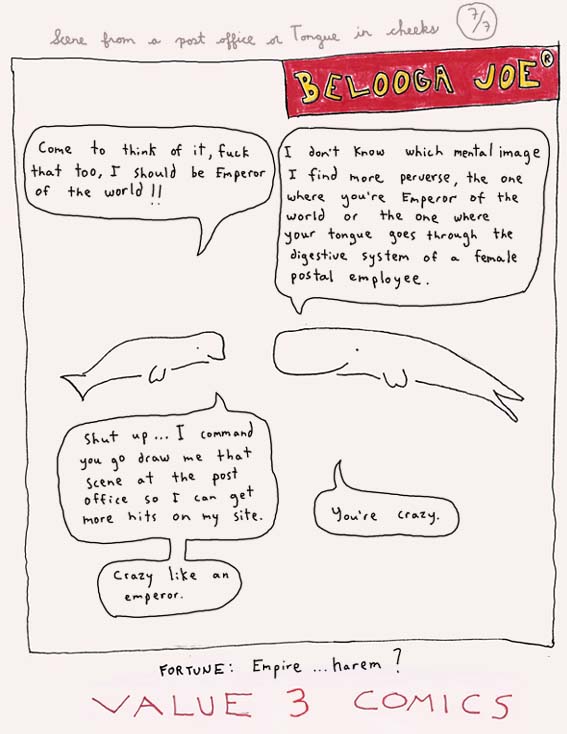 Scene from a post office or Tongue in cheeks 7/7
BELOOGA JOE®
Come to think of it, fuck
that too, I should be Emperor
of the world!!
I don't know which mental image
I find more perverse, the one
where you're Emperor of the
world or the one where
your tongue goes through the
digestive system of a female
postal employee.
Shut up... I command
you go draw me that
scene at the post
office so I can get
more hits on my site.
You're crazy.
Crazy like an
emperor.
FORTUNE: Empire ...harem?
VALUE 3 COMICS